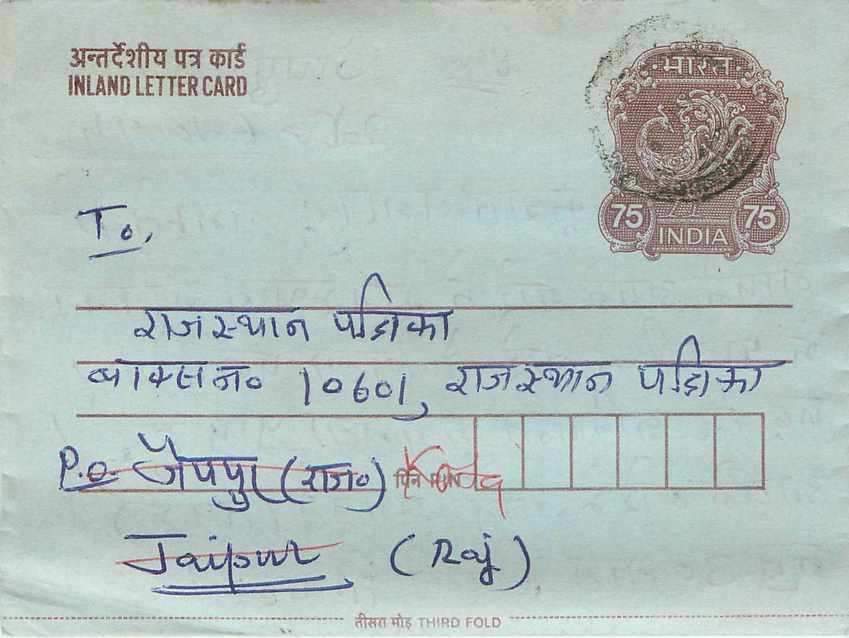 अन्तर्देशीय पत्र कार्ड
INLAND LETTER CARD
भारत
75 75
INDIA
To,
राजस्थान पत्रिका
बाक्स न० 10601, राजस्थान पत्रिका
P.o. जैपपुर (राज०) पिन
Jaipur (Raj)
तीसरा मोड़ THIRD FOLD